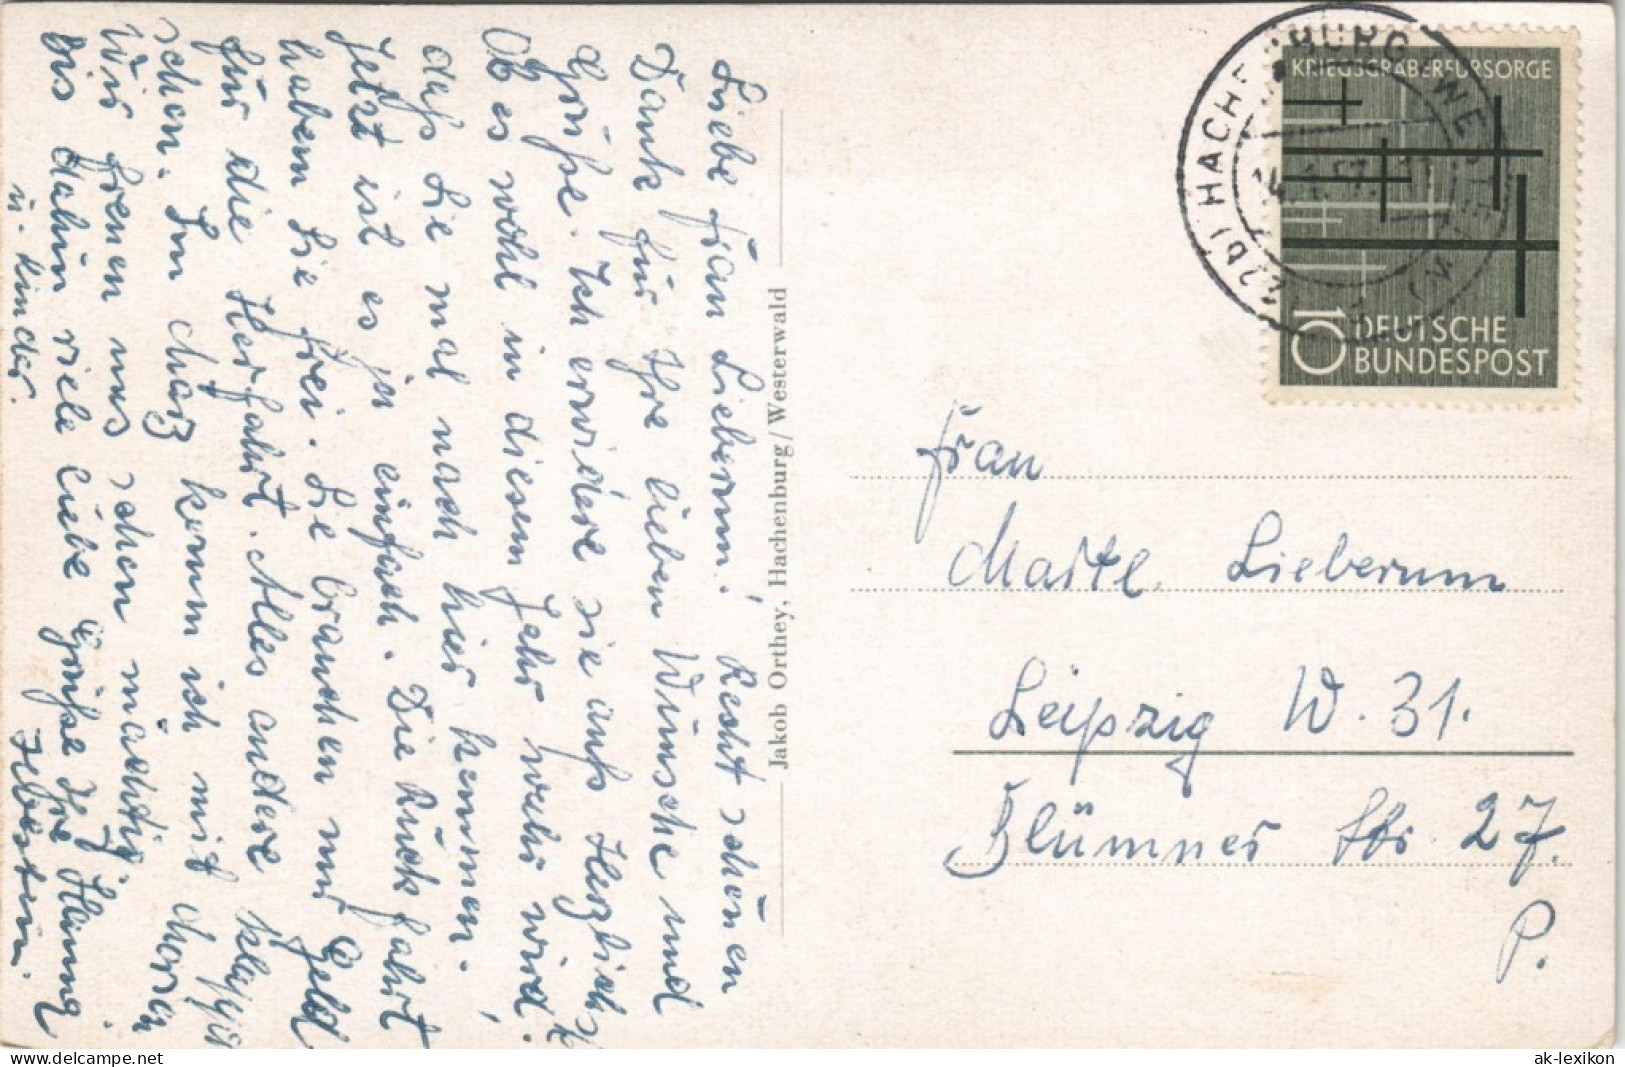 Liebe Frau Lieberum! Recht schönen
Dank für Ihre lieben Wünsche und
Grüße. Ich erwidere sie aufs Herzlichste
Ob es wohl in diesem Jahr mehr wird,
daß Sie mal nach hier kommen.
Jetzt ist es ja einfach. Die Rückfahrt
haben Sie frei. Sie brauchen nur Geld
für die Herfahrt. Alles andere
schon. Im März komm ich mit
Wir freuen uns schon mächtig.
Bis dahin viele liebe Grüße Ihre
u. Kinder.
Jakob Orthey, Hachenburg/Westerwald
HACHENBURG (WESTERW
57
KRIEGSGRÄBERFÜRSORGE
10 DEUTSCHE
BUNDESPOST
Frau
Lieberum
Leipzig W. 31.
Blümner Str. 27.
P.
ak-lexikon